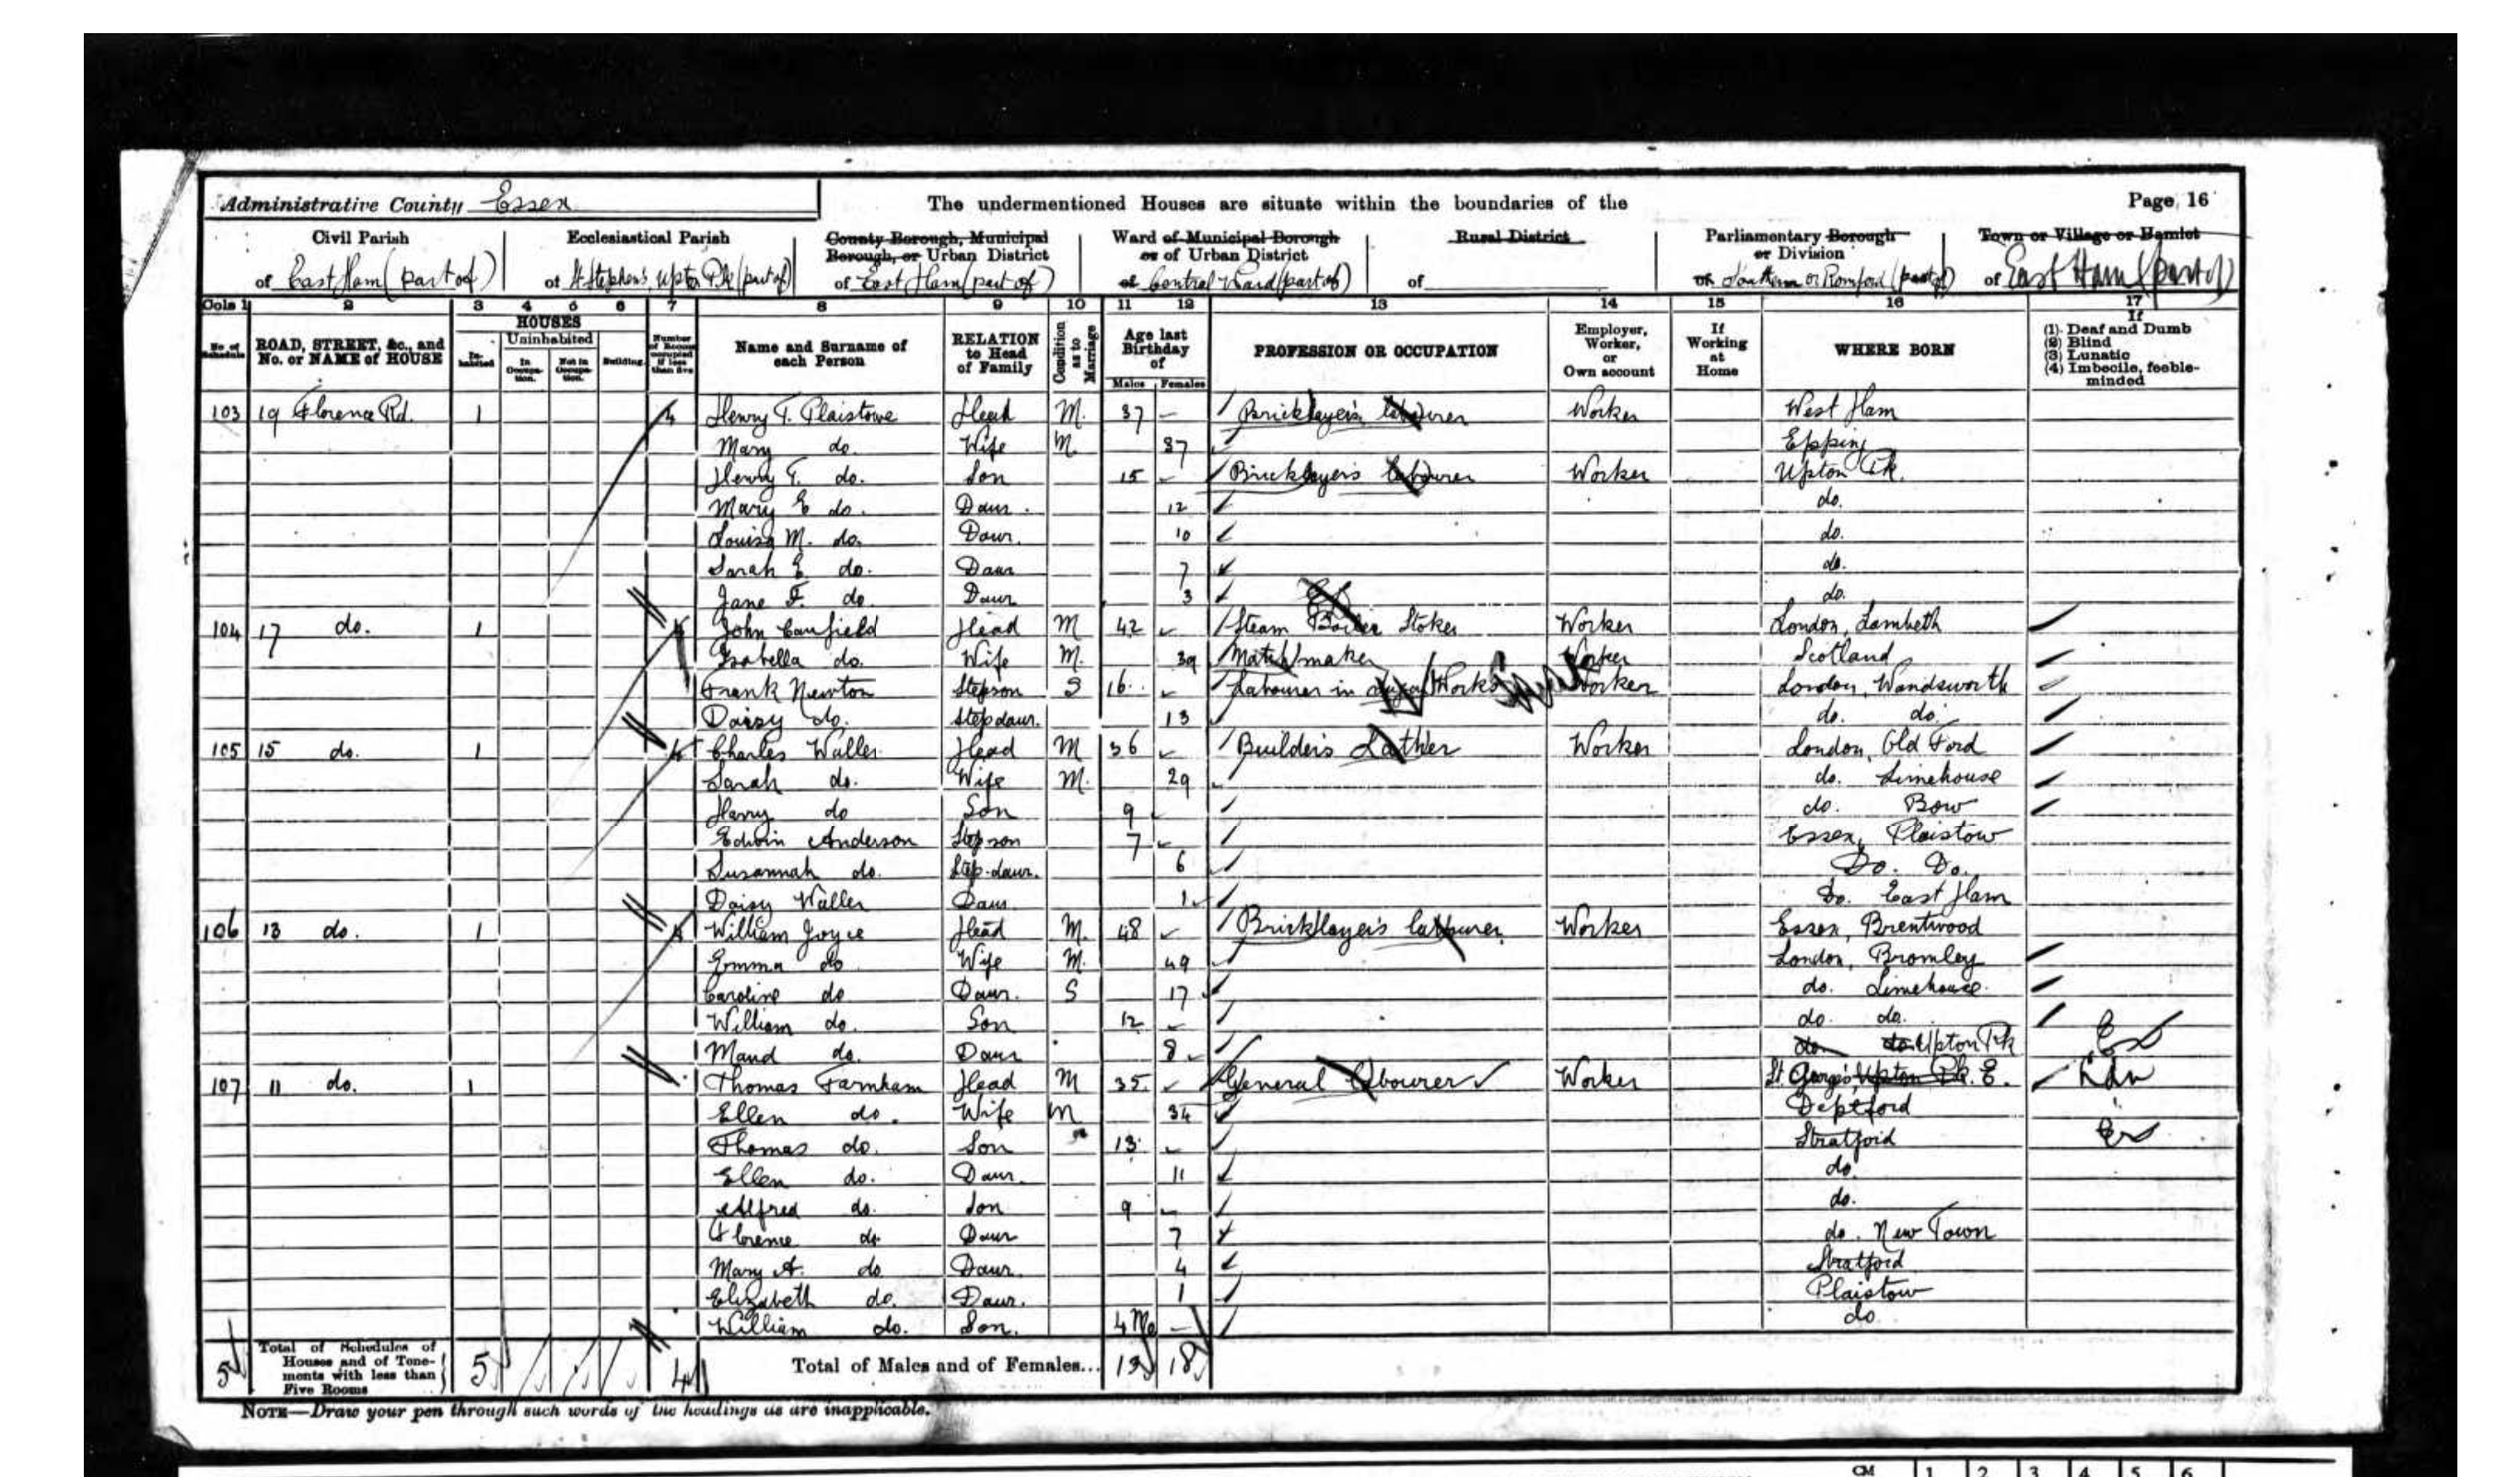 Administrative County Essex The undermentioned Houses are situate within the boundaries of the Page 16
Civil Parish Ecclesiastical Parish County Borough, Municipal Borough, or Urban District Ward of Municipal Borough or of Urban District Rural District Parliamentary Borough or Division Town or Village or Hamlet
of East Ham (part of) of St Stephen's Upton Pk (part of) of East Ham (part of) of Central Ward (part of) of of Southern or Romford (part of) of East Ham (part of)
Cols 1 2 3 4 5 6 7 8 9 10 11 12 13 14 15 16 17
No. of Schedule ROAD, STREET, &c., and No. or NAME of HOUSE HOUSES Inhabited Uninhabited In Occupation. Not in Occupation. Building. Number of Rooms occupied if less than five Name and Surname of each Person RELATION to Head of Family Condition as to Marriage Age last Birthday of Males Females PROFESSION OR OCCUPATION Employer, Worker, or Own account If Working at Home WHERE BORN If (1) Deaf and Dumb (2) Blind (3) Lunatic (4) Imbecile, feeble-minded
103 19 Florence Rd. 1 4 Henry T. Plaistowe Head M. 37 – Bricklayer's labourer Worker West Ham
Mary do. Wife M. 37 Epping
Henry T. do. Son 15 Bricklayer's labourer Worker Upton Pk.
Mary E do. Daur. 12 do.
Louisa M. do. Daur. 10 do.
Sarah E do. Daur 7 do.
Jane F. do. Daur 3 do.
104 17 do. 1 4 John Caufield Head M 42 Steam Boiler Stoker Worker London, Lambeth
Isabella do. Wife M. 39 Matchmaker Worker Scotland
Frank Newton Stepson S 16 Labourer in Works Worker London, Wandsworth
Daisy do. Stepdaur. 13 do. do.
105 15 do. 1 4 Charles Waller Head M 36 Builder's Lather Worker London, Old Ford
Sarah do. Wife M. 29 do. Limehouse
Harry do Son 9 do. Bow
Edwin Anderson Stepson 7 Essex, Plaistow
Susannah do. Step-daur. 6 Do. Do.
Daisy Waller Daur 1 Do. East Ham
106 13 do. 1 4 William Joyce Head M. 48 Bricklayer's labourer Worker Essex, Brentwood
Emma do Wife M. 49 London, Bromley
Caroline do Daur. S 17 do. Limehouse
William do. Son 12 do. do.
Maud do. Daur 8 do. do. Upton Pk
107 11 do. 1 Thomas Farnham Head M 35 General labourer Worker St. George's Upton Pk. E.
Ellen do. Wife M 34 Deptford
Thomas do. Son 13 Stratford
Ellen do. Daur. 11 do.
Alfred do. Son 9 do.
Florence do Daur 7 do. New Town
Mary A. do Daur. 4 Stratford
Elizabeth do. Daur. 1 Plaistow
William do. Son. 4 Mo – do
5 Total of Schedules of Houses and of Tenements with less than Five Rooms 5 4 Total of Males and of Females... 13 18
NOTE—Draw your pen through such words of the headings as are inapplicable.
CM 1 2 3 4 5 6